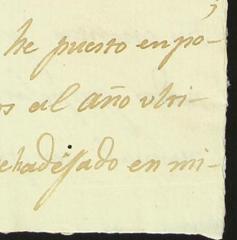 he puesto en po-
os al año ulti-
ehadejado en mi-